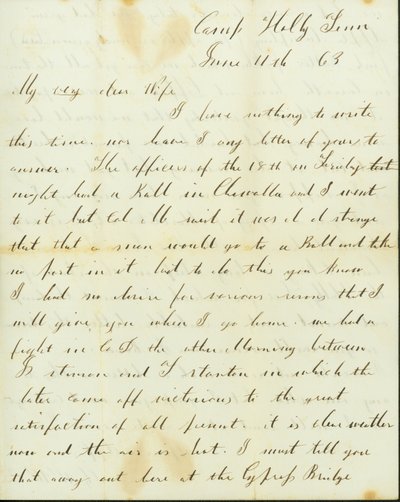 Camp Holly Tenn
June 11th 63
My very dear Wife
I have nothing to write
this time. nor have I any letter of yours to
answer. The officers of the 18th on Friday last
night had a Ball in Chewalla and I went
to it but Col M said it was d d strange
that that a man would go to a Ball and take
no part in it but to do this you know
I had no desire for various resons that I
will give you when I go home. we had a
fight in Co I the other Morning between
S and T Stanton in which the
later came off victorious to the great
sitisfaction of all present. it is clear weather
now and the air is hot. I must tell you
that away out here at the Cypress Bridge